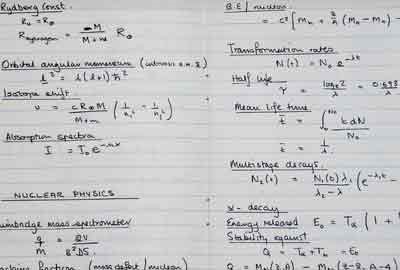 Rydberg Const.
R∞ = R∞
R_Hydrogen = M / (M + m) R∞
Orbital angular momentum
l² = l(l+1)ħ²
Isotope shift
ν = cR∞M / (M+m) (1/n₁² − 1/n₂²)
Absorption spectra
I = I₀ e^(-nαx)
NUCLEAR PHYSICS
mass spectrometer
q/m = / B²DS
fraction (mass defect/nucleon)
B.E/nucleon
= c² [Mₙ + Z/A (M_H − Mₙ) −
Transformation rates
N(t) = N₀ e^(-λt)
Half life
τ = logₑ2 / λ = 0.693
Mean life time
t̄ = ∫₀^N₀ t dN / N₀
t̄ = 1/λ
Multistage decays
N₂(t) = N₁(0) λ₁ / (λ₂ − λ) (e^(-λ₁t) −
α-decay
Energy released E₀ = Tα (1 +
Stability against
Q = Tα + T_b = E₀